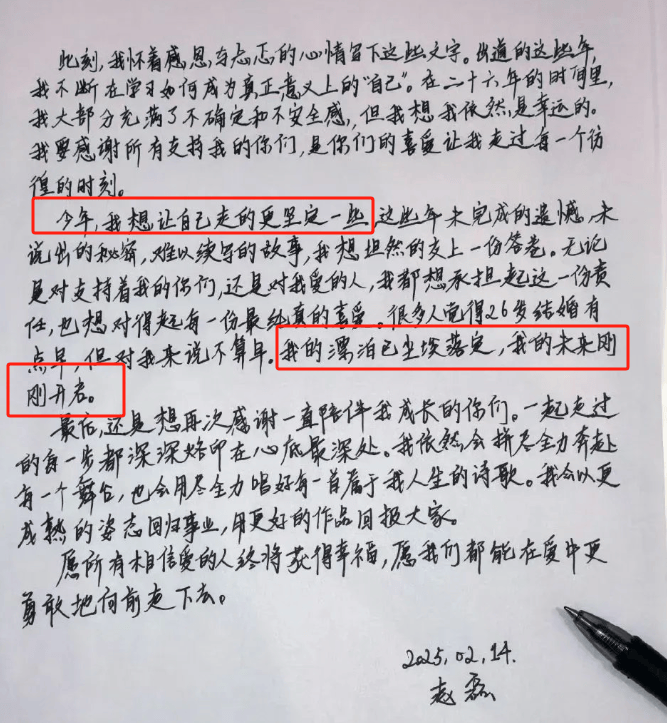 此刻，我怀着感恩与忐忑的心情留下这些文字。出道的这些年，
我不断在学习如何成为真正意义上的“自己”。在二十六年的时间里，
我大部分充满了不确定和不安全感，但我想我依然是幸运的。
我要感谢所有支持我的你们，是你们的喜爱让我走过每一个彷
徨的时刻。
今年，我想让自己走的更坚定一些，这些年未完成的遗憾，未
说出的秘密，难以续写的故事，我想坦然的交上一份答卷。无论
是对支持着我的你们，还是对我爱的人，我都想承担起这一份责
任，也想对得起每一份最纯真的喜爱。很多人觉得26岁结婚有
点早，但对我来说不算早。我的漂泊已尘埃落定，我的未来刚
刚开启。
最后，还是想再次感谢一直陪伴我成长的你们。一起走过
的每一步都深深烙印在心底最深处。我依然会拼尽全力奔赴
每一个舞台，也会用尽全力唱好每一首属于我人生的诗歌。我会以更
成熟的姿态回归事业，用更好的作品回报大家。
愿所有相信爱的人终将获得幸福，愿我们都能在爱中更
勇敢地向前走下去。
2025.02.14.
赵磊